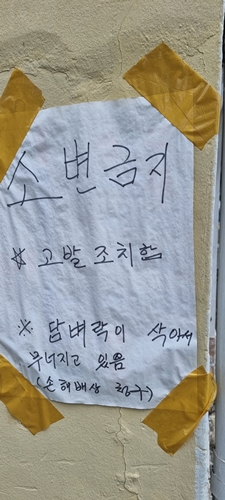 소변금지
※ 고발조치함
※ 담벼락이 삭아서
무너지고 있음
(손해배상 청구)